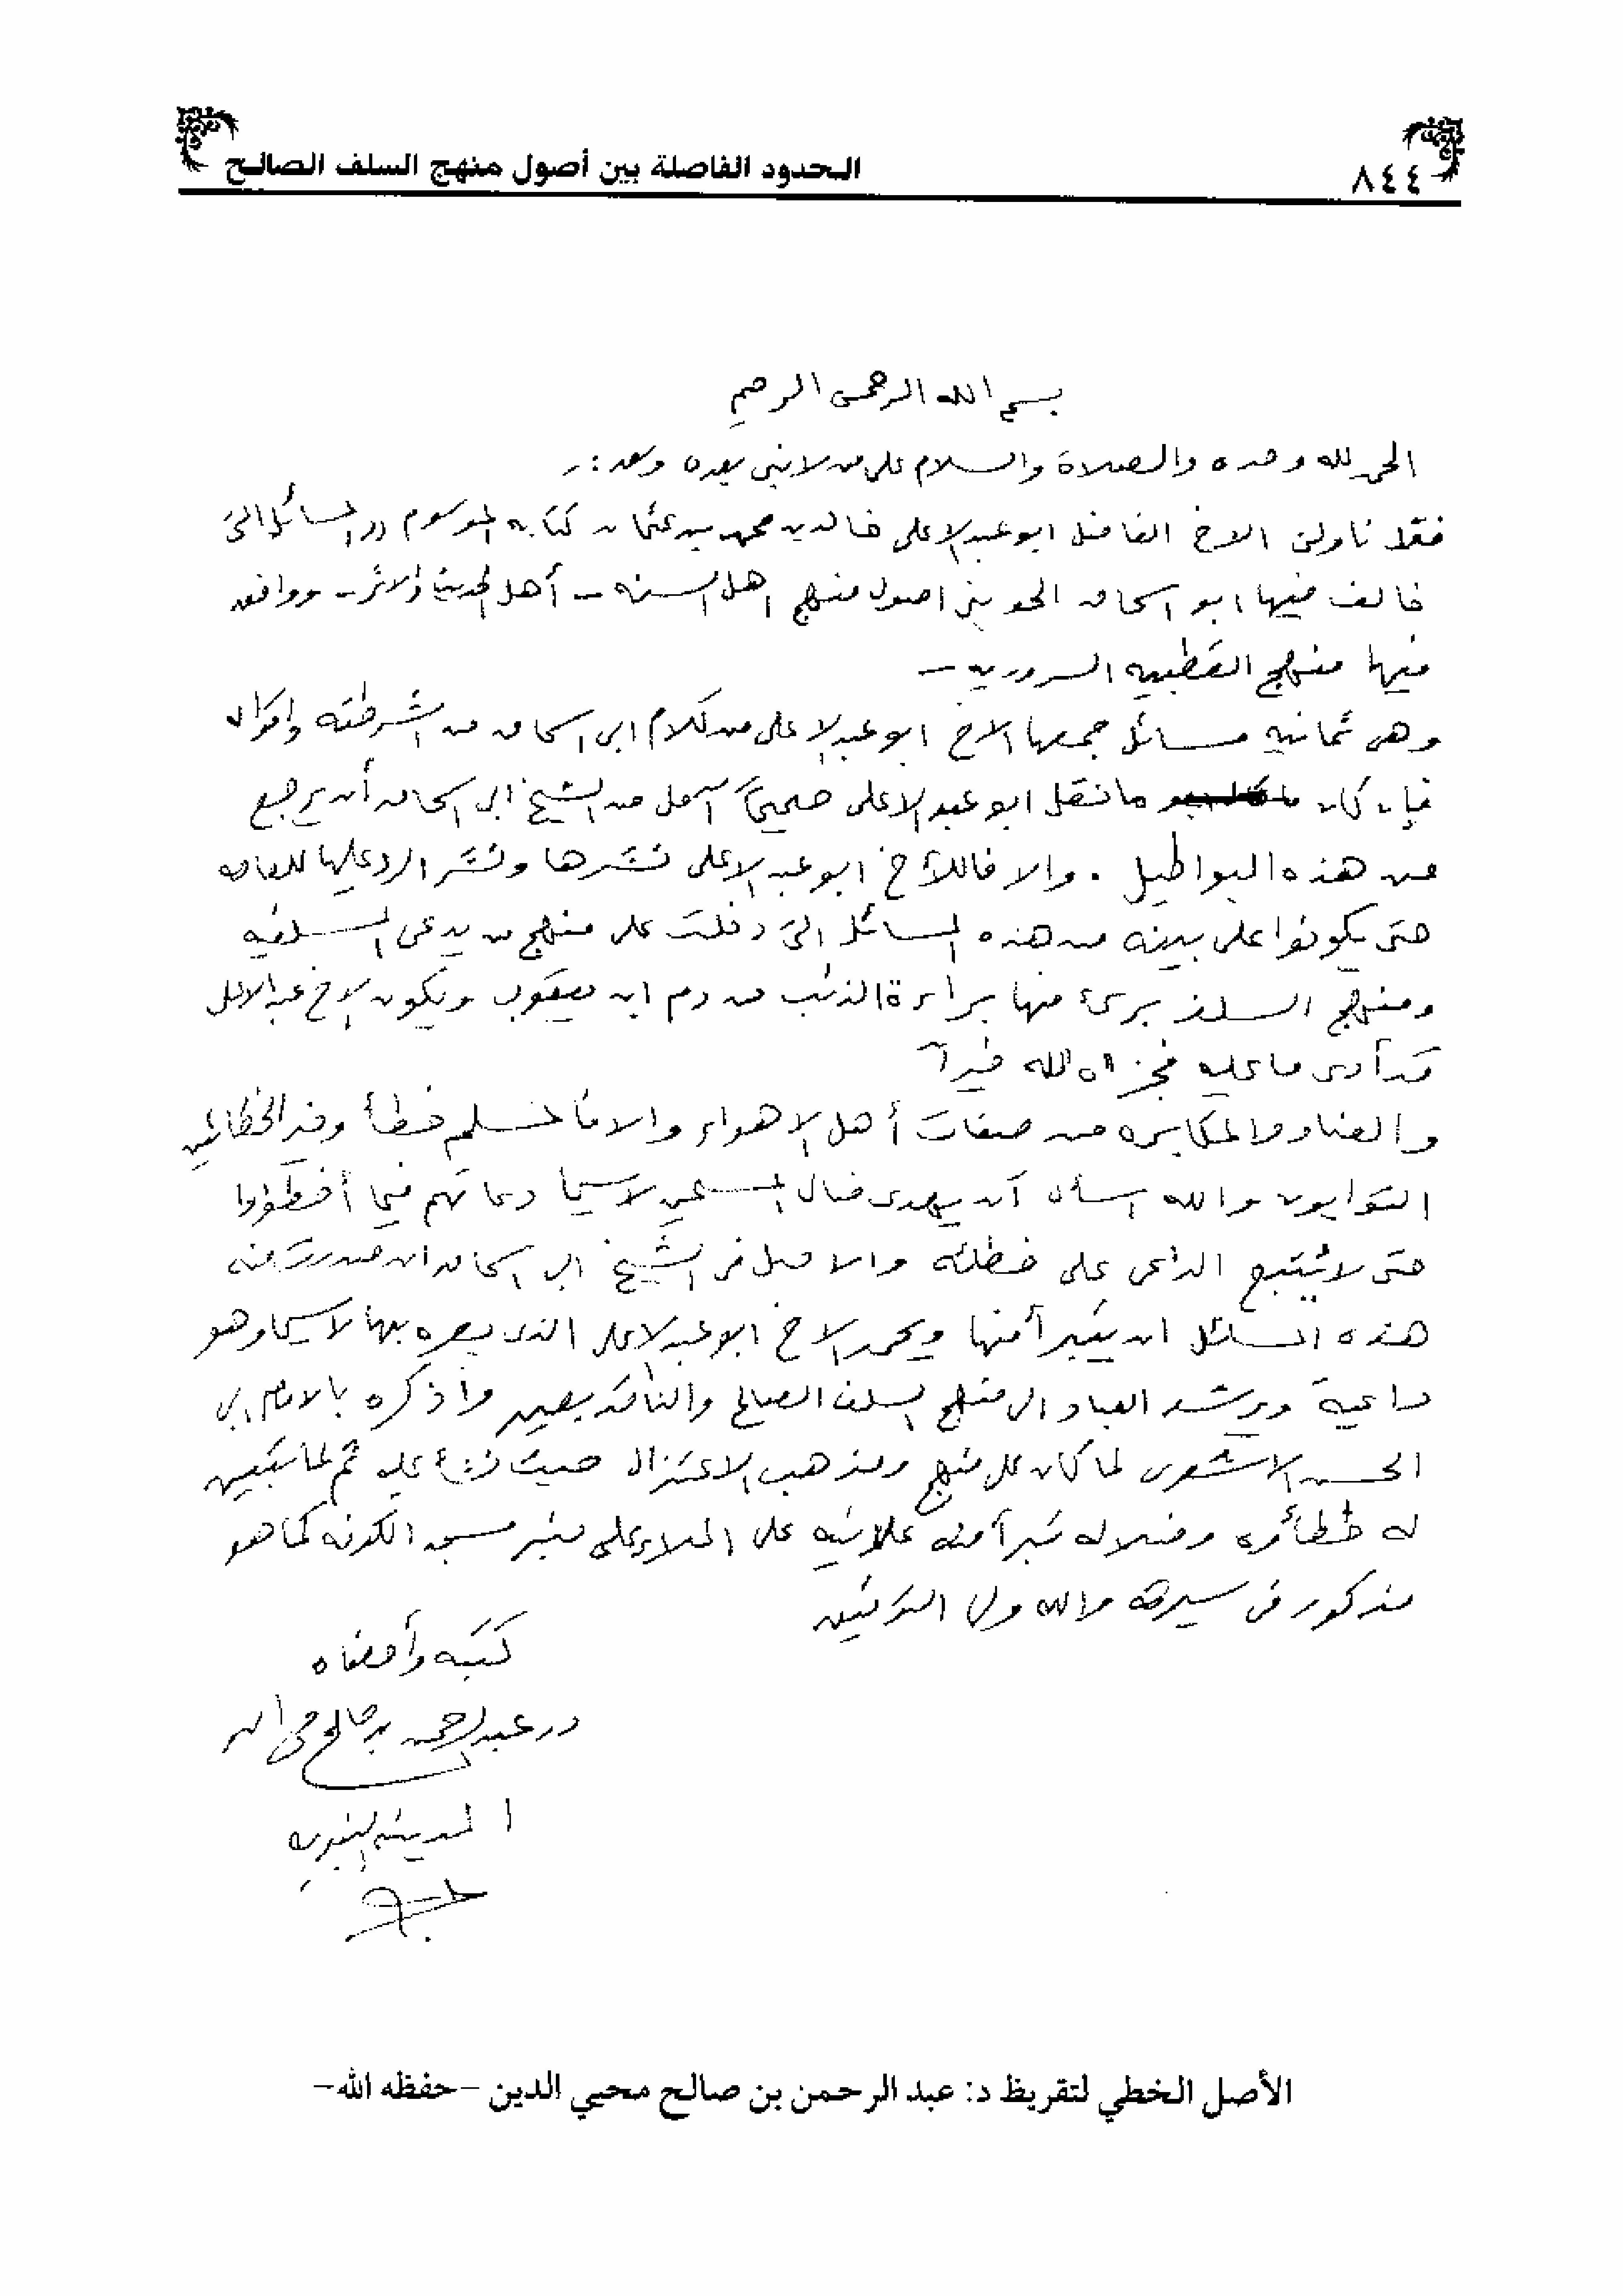 ٨٤٤
الحدود الفاصلة بين أصول منهج السلف الصالح
بسم الله الرحمن الرحيم
الحمد لله وحده والصلاة والسلام على من لا نبي بعده وبعد :ـ
فقد ناولني الاخ الفاضل ابو عبد الاعلى خالد بن محمد بن عثمان كتابه الموسوم ((المسائل التي
خالف فيها ابو اسحاق الحويني اصول منهج اهل السنه - أهل الحديث والاثر - ووافق
فيها منهج القطبيه السروريه -
وهي ثمانيه مسائل جمعها الاخ ابو عبد الاعلى من كلام ابي اسحاق من اشرطته واقواله
فإن كان ما نقل ابو عبد الاعلى صحيحاً آمل من الشيخ ابي اسحاق أن يرجع
من هذه البواطيل . والا فاللأخ ابو عبد الاعلى نشرها ونشر الرد عليها للعامه
حتى يكونوا على بينه من هذه المسائل التي دخلت على منهج من يدعي السلفيه
ومنهج السلف برئ منها براءة الذئب من دم ابن يعقوب ويكون الاخ عبد الاعلى
قد أدى ما عليه فجزاه الله خيراً
والعناد والمكابره من صفات أهل الاهواء والا فالمسلم خطأ وخير الخطائين
التوابون والله اسأل أن يهدي ضال المسلمين لاسيما دعاتهم فيما أخطؤوا
حتى لا يُتبع الداعي على خطئه والامل في الشيخ ابي اسحاق ان صدرت منه
هذه المسائل ان يتبرأ منها ويحمد الاخ ابو عبد الاعلى الذي بصره بها لاسيما وهو
داعية ويرشد العباد الى منهج السلف الصالح والناقد بصير وأذكره بالامام ابي
الحسن الاشعري لما كان على منهج ومذهب الاعتزال حيث نشأ عليه ثم لما تبين
له خطائره وضلاله تبرأ منه علانيه على الملاء على منبر مسجد الكوفه كما هو
مذكور في سيرته والله ولي التوفيق
كتبه وأمضاه
د. عبد الرحمن بن صالح محي الدين
المدينه النبويه
الأصل الخطي لتقريظ د: عبد الرحمن بن صالح محيي الدين -حفظه الله-